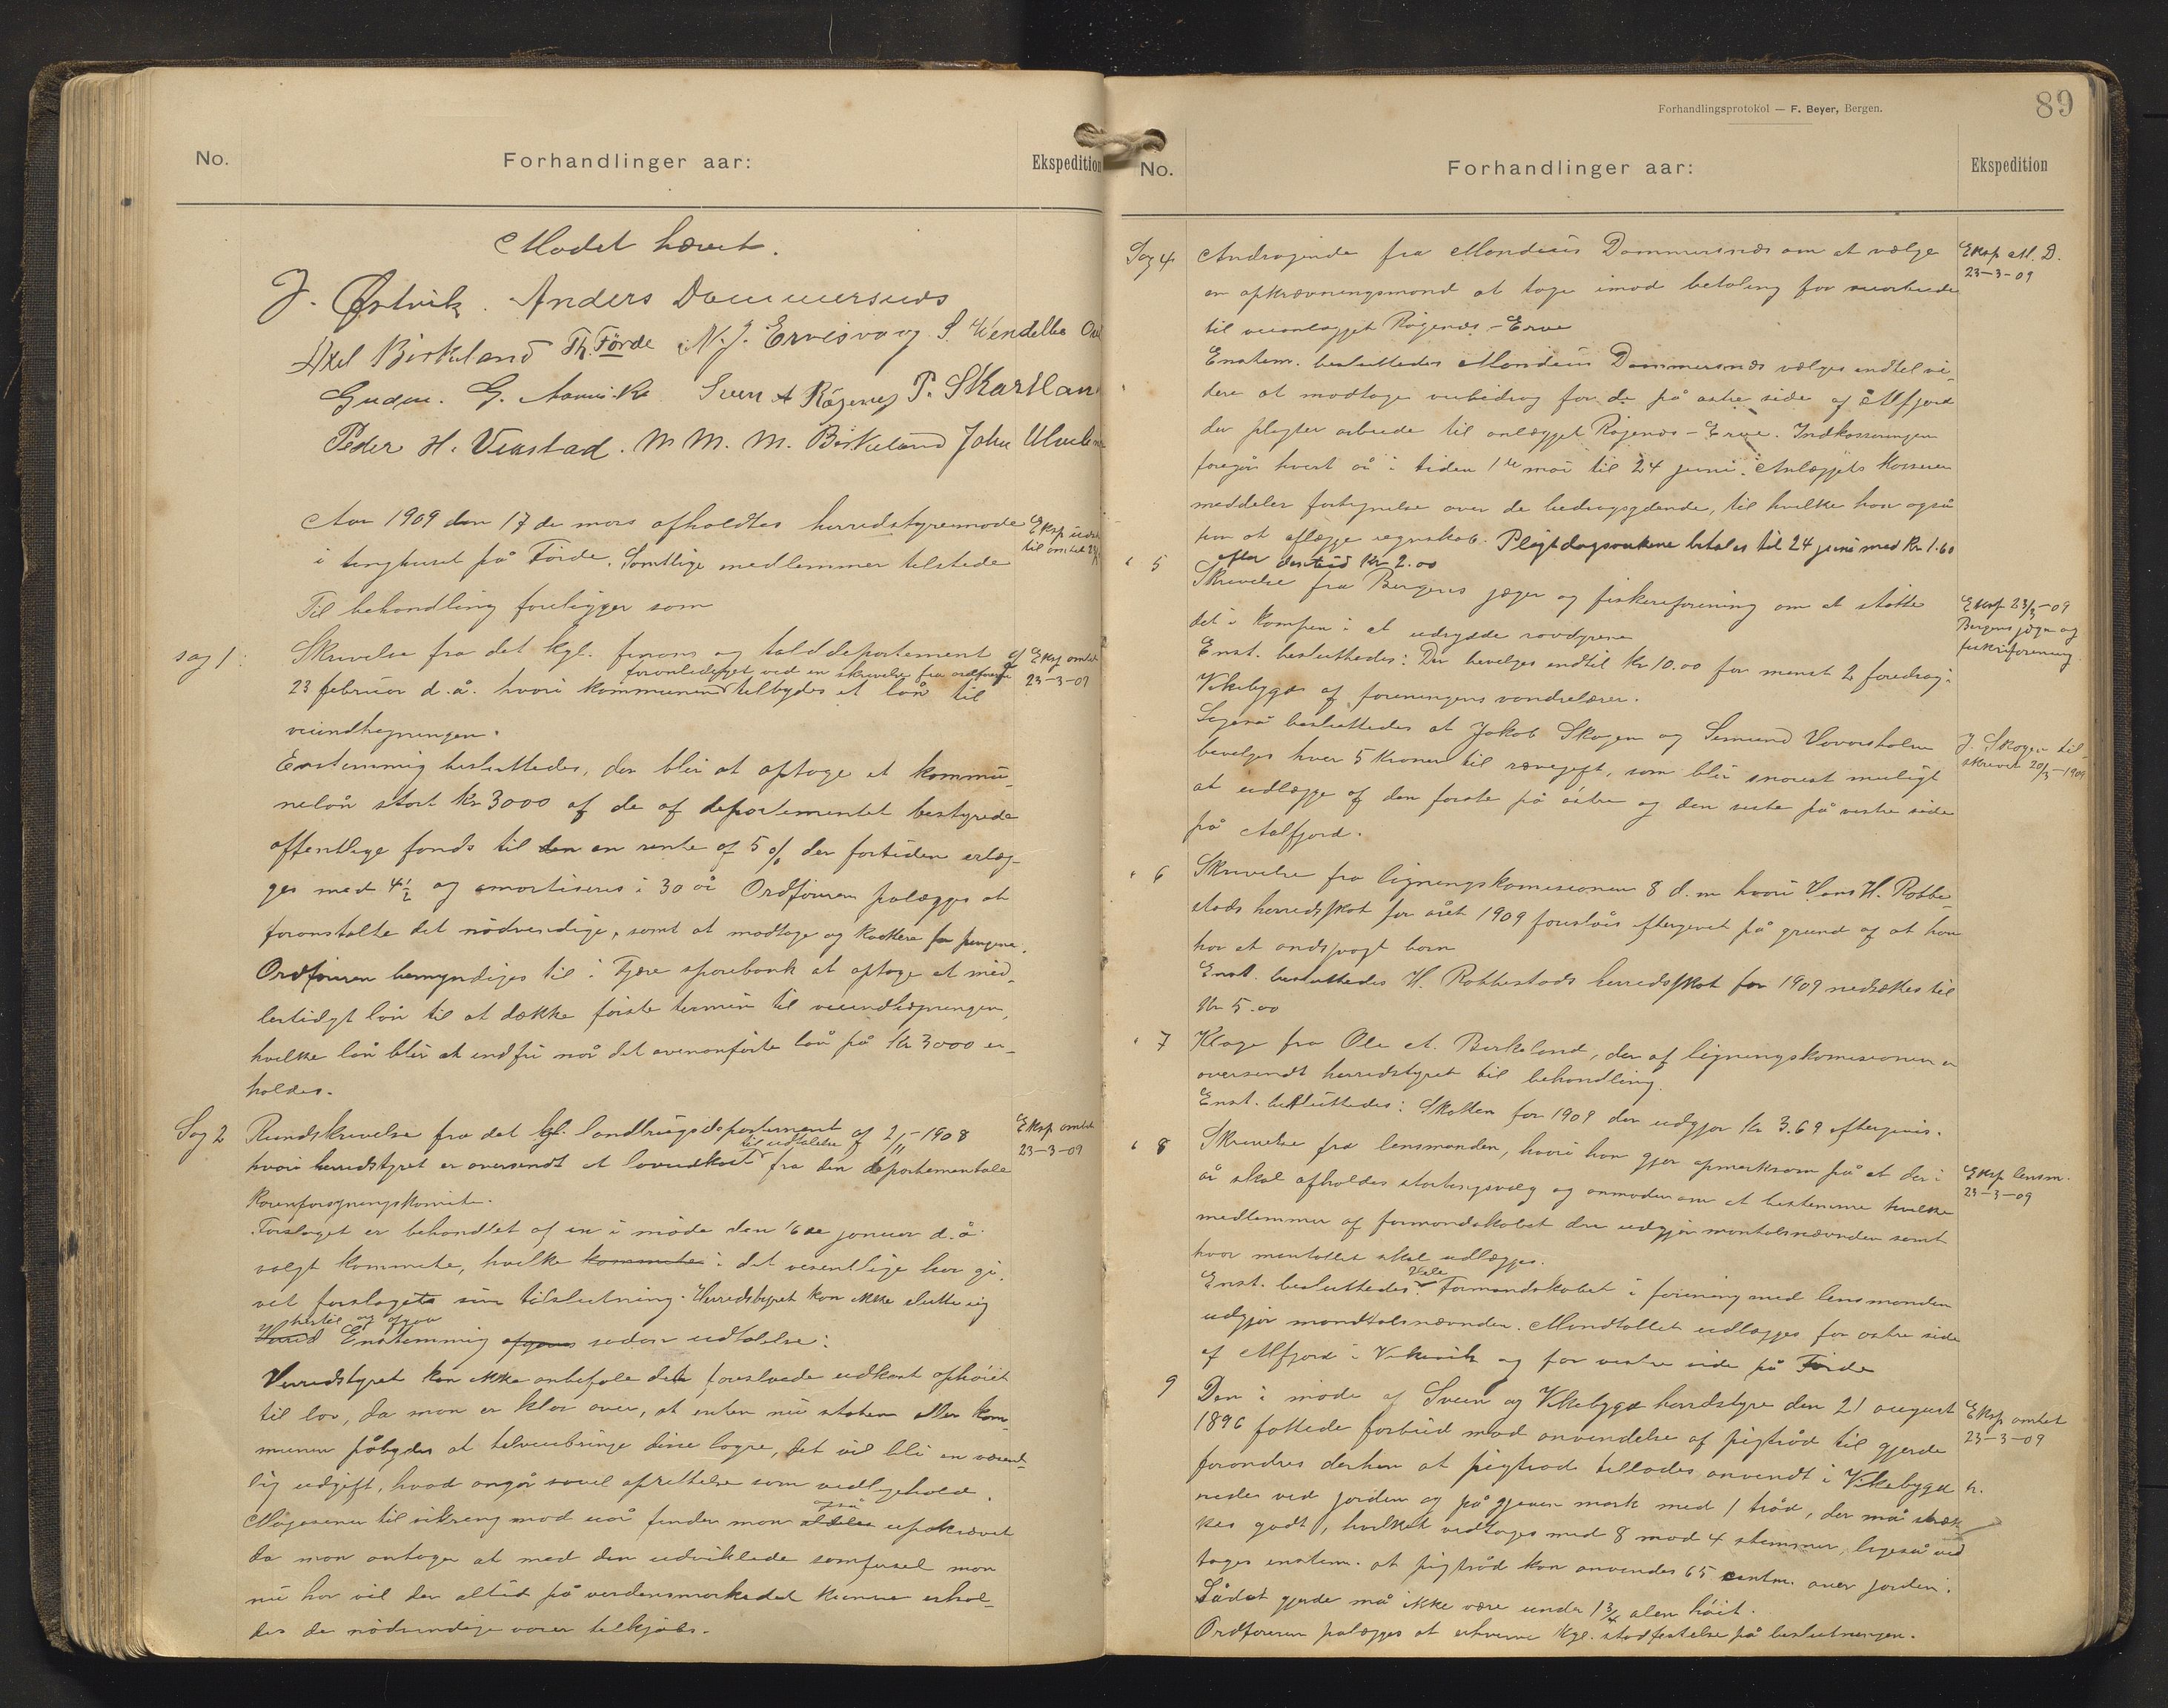 No.
Forhandlinger aar:
Ekspedition
Mødet hævet.
J. Østvik. Anders Dommersnes
Axel Birkeland Th. Förde N. J. Ervesvaag S. Vendelbo
Gudm. G. Svein A Røgenes P. Skartlan
Peder H. Vestad. M M. M. Birkeland John
Aar 1909 den 17de mars afholdtes herredstyremøde
i tinghuset på Førde. Samtlige medlemmer tilstede
Eksp
til amtet
Til behandling foreligger som
sag 1:
Skrivelse fra det kgl. finans og tolddepartement af
foranlediget ved en skrivelse fra ordfører
23 februar d. å. hvori kommunen tilbydes et lån til
Eksp amtet
23-3-09
veiindhegningen.
Enstemmig besluttedes, der blir at optage et kommu-
nelån stort kr 3000 af de af departementet bestyrede
offentlige fonds til den en rente af 5 % der fortiden erlæg-
ges med 4½ og amortiseres i 30 år Ordføreren pålægges at
foranstalte det nødvendige, samt at modtage og kvittere for pengene.
Ordføreren bemyndiges til i Fjære sparebank at optage et mid-
lertidigt lån til at dække første termin til veiindhegningen,
hvilke lån blir at indfri når det ovenanførte lån på kr 3000 er-
holdes.
Sag 2
Rundskrivelse fra det kgl. landbrugsdepartement af 2/11-1908
til udtalelse
hvori herredstyret er oversendt et lovudkast fra den departementale
Eksp amtet
23-3-09
kornforsyningskomite.
Forslaget er behandlet af en i møde den 16de januar d. å.
valgt kommite, hvilke kommite i det vesentlige har gi-
vet forslaget sin tilslutning. Herredstyret kan ikke slutte sig
hertil og afgav
Enstemmig afgaves sådan udtalelse:
Herredstyret kan ikke anbefale det foreslåede udkast ophøiet
til lov, da man er klar over, at enten nu staten eller kom-
munen påbydes at tilveiebringe disse lagre, det vil bli en væsent-
lig udgift, hvad angår såvel oprettelse som vedligehold.
også
Magasener til sikring mod uår finder man således upåkrævet
da man antager at med den udviklede samfærsel man
nu har vil der altid på verdensmarkedet kunne erhol-
des de nødvendige varer tilkjøbs.
Forhandlingsprotokol — F. Beyer, Bergen.
89
No.
Forhandlinger aar:
Ekspedition
Sag 4
Andragende fra Mondeus Dommersnes om at vælge
en opkrævningsmand at tage imod betaling for veiarbeide
til veianlægget Røgenæs - Erve
Eksp M. D.
23-3-09
Enstem. besluttedes Mondeus Dommersnes vælges indtil vi-
dere at modtage veibidrag for de på østre side af Ålfjord
der pligter arbeide til anlægget Røgenæs - Erve. Indkasseringen
foregår hvert år i tiden 1ste mai til 24 juni. Anlæggets kasserer
meddeler fortegnelse over de bidragsydende, til hvilke han også
har at aflægge regnskab. Pligtdagsverkene betales til 24 juni med Kr 1.60
efter den tid Kr 2.00
" 5
Skrivelse fra Bergens jæger og fiskerforening om at støtte
det i kampen i at udrydde rovdyrene
Eksp 23/3-09
Bergens jæger og
fiskerforening
Enst. besluttedes: Der bevilges indtil kr 10.00 for menst 2 foredrag i
Vikebygd af foreningens vandrelærer.
Ligeså besluttedes at Jakob Skogen og Semund Vovorsholm
bevilges hver 5 kroner til rævegift, som blir snarest muligt
at udlægge af den første på østre og den siste på vestre side
på Aalfjord.
J. Skogen til-
skrevet 20/3-1909
" 6
Skrivelse fra ligningskomisionen 8 d. m hvori Hans H. Robbe-
stads herredsskat for året 1909 foreslås eftergivet på grund af at han
har et åndssvagt barn
Enst. besluttedes H. Robbestads herredsskat for 1909 nedsættes til
Kr 5.00
" 7
Klage fra Ole A. Birkeland, der af ligningskomisionen er
oversendt herredstyret til behandling.
Enst. besluttedes: Skatten for 1909 der udgjør kr 3.69 eftergives.
" 8
Skrivelse fra lensmanden, hvori han gjør opmerksom på at der i
år skal afholdes stortingsvalg og anmoder om at bestemme hvilke
medlemmer af formandskabet der udgjør mantalsnævnden samt
hvor mantallet skal udlægges.
Eksp lensm.
23-3-09
Hele
Enst. besluttedes: Formandskabet i forening med lensmanden
udgjør mandtalsnævnden. Mandtallet udlægges for østre side
af Ålfjord i Vikevik og for vestre side på Førde
9
Den i møde af Sveen og Vikebygd herredstyre den 21 august
1896 fattede forbud mod anvendelse af pigtråd til gjerde
Eksp amtet
23-3-09
forandres derhen at pigtråd tillades anvendt i Vikebygd h.
nede ved jorden og på gjerer mark med 1 tråd, der må stræk-
kes godt, hvilket vedtages med 8 mod 4 stemmer, ligeså ved
tages enstem. at pigtråd kan anvendes 65 centm. over jorden.
Sådat gjerde må ikke være under 1 3/4 alen høit.
Ordføreren pålægges at erhverve kgl. stadfestelse på beslutningen.